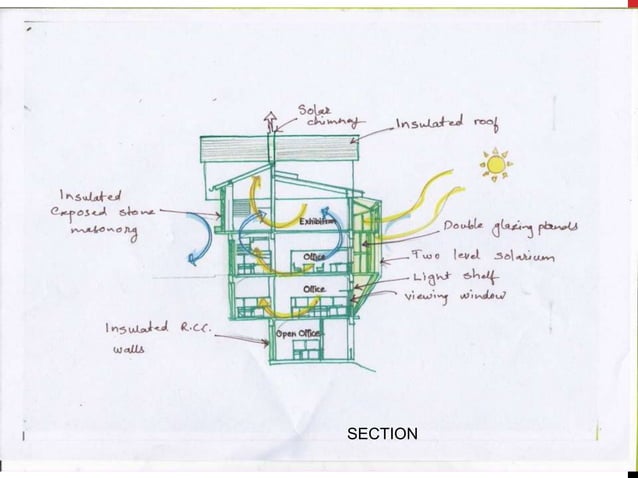 Solar
chimney
Insulated roof
Insulated
Exposed stone
masonory
Exhibition
Double glazing panels
Office
Two level solarium
Light shelf
Office
viewing window
Insulated R.C.C.
walls
Open Office
SECTION